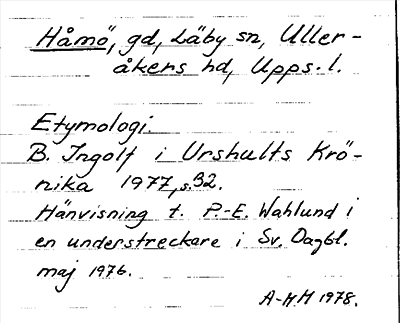 Håmö, gd, Läby sn, Uller-
åkers hd, Upps. l.
Etymologi.
B. Ingolf i Urshults Krö-
nika 1977, s. 32.
Hänvisning t. P.-E. Wahlund i
en understreckare i Sv. Dagbl.
maj 1976.
A-H.H 1978.